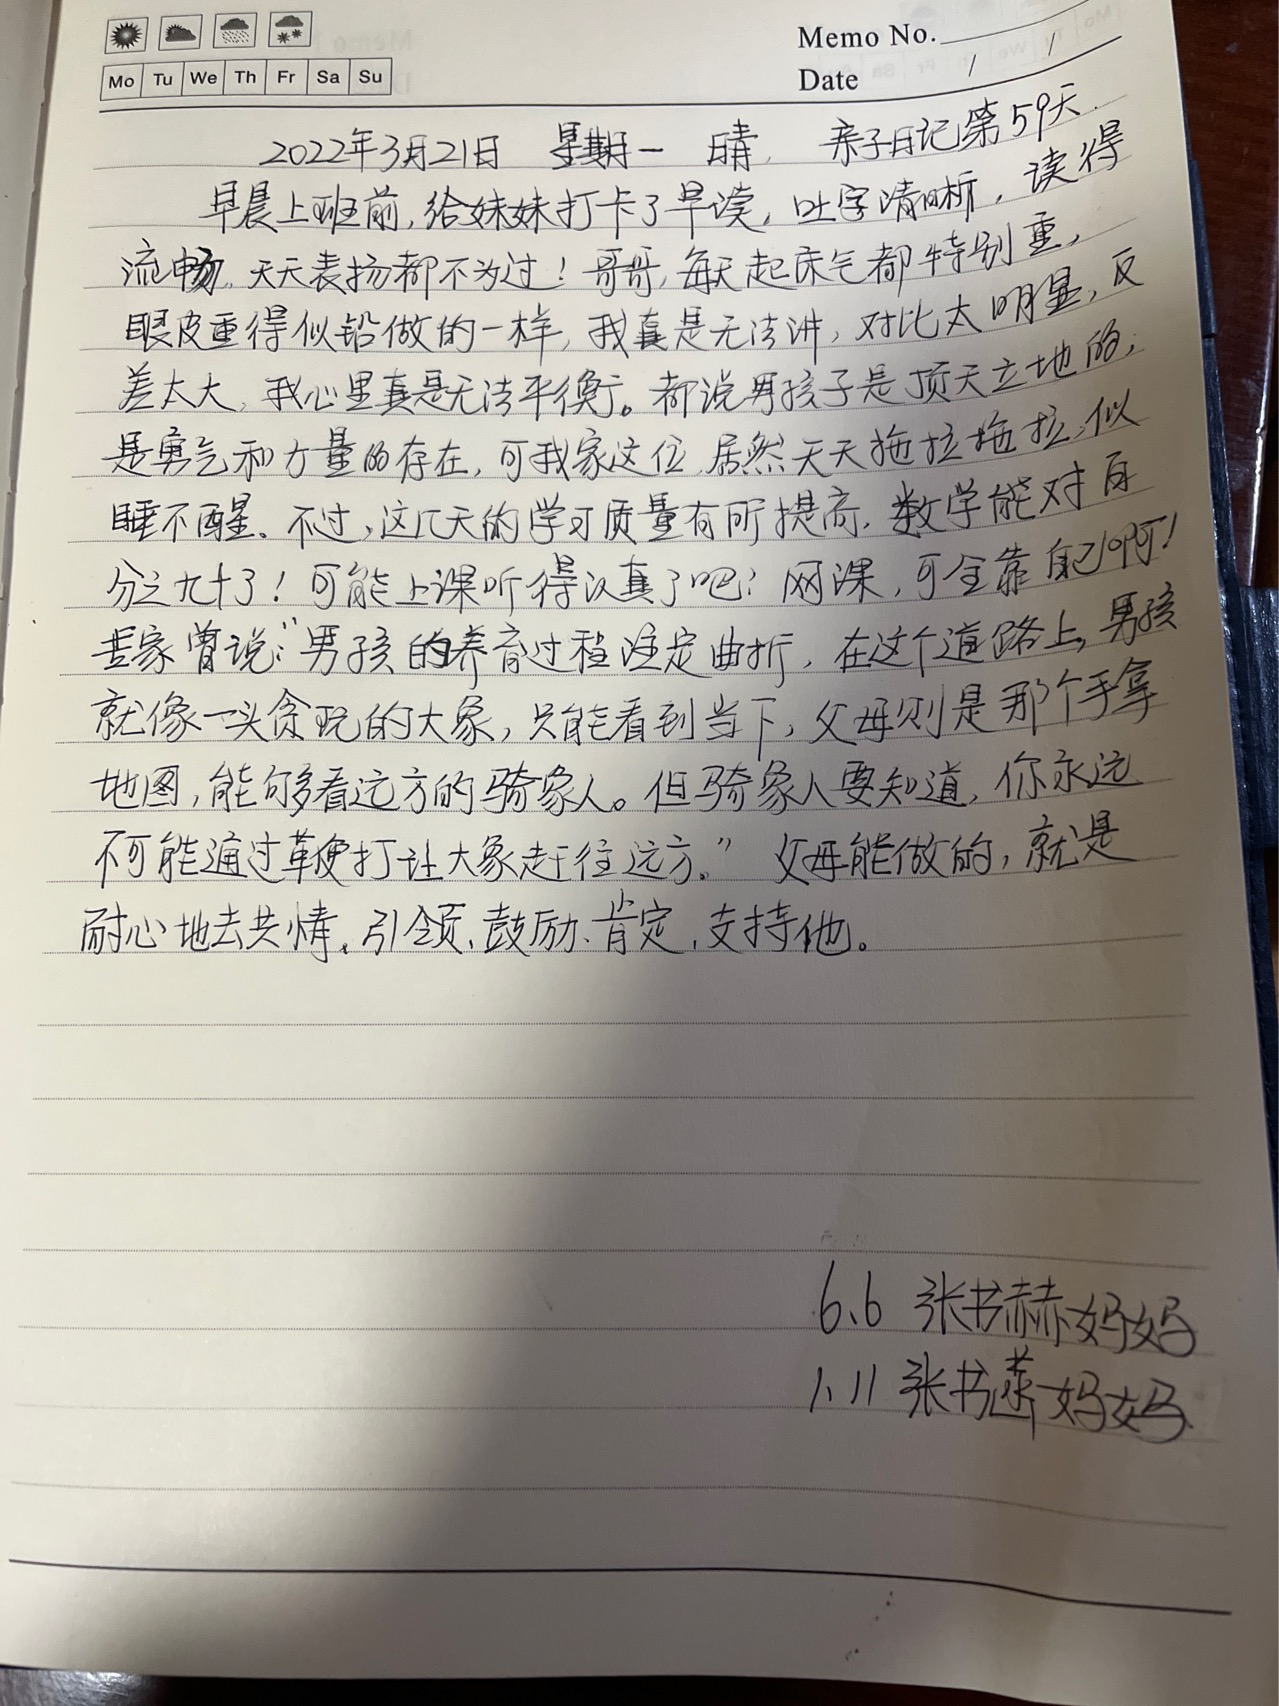 Memo No.
Mo Tu We Th Fr Sa Su
Date / /
2022年3月21日 星期一 晴 亲子日记第59天
早晨上班前,给妹妹打卡了早读,吐字清晰,读得
流畅,天天表扬都不为过!哥哥,每天起床气都特别重,
眼皮重得似铅做的一样,我真是无法讲,对比太明显,反
差太大,我心里真是无法平衡。都说男孩子是顶天立地的,
是勇气和力量的存在,可我家这位,居然天天拖拉拖拉,似
睡不醒。不过,这几天的学习质量有所提高,数学能对百
分之九十了!可能上课听得认真了吧?网课,可全靠自己啊!
专家曾说:“男孩的养育过程注定曲折,在这个道路上,男孩
就像一头贪玩的大象,只能看到当下,父母则是那个手拿
地图,能够看远方的骑象人。但骑象人要知道,你永远
不可能通过鞭打让大象赶往远方。”父母能做的,就是
耐心地去共情、引领、鼓励、肯定,支持他。
6.6 张书赫妈妈
1.11 张书妈妈